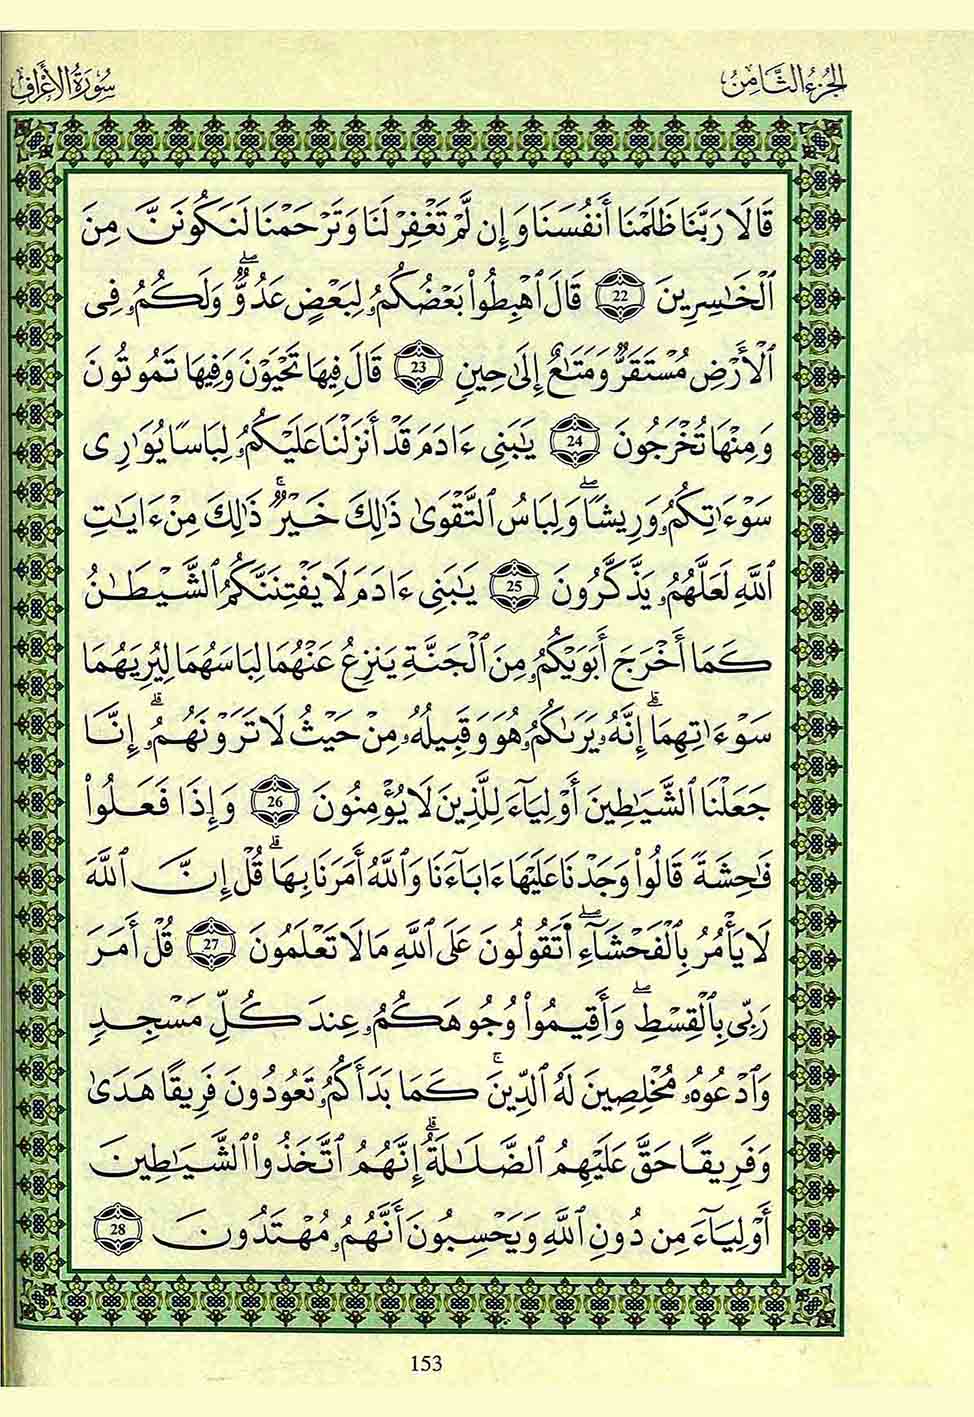 الجُزْءُ الثَّامِنُ
سُورَةُ الأَعْرَافِ
قَالَا رَبَّنَا ظَلَمْنَا أَنفُسَنَا وَإِن لَّمْ تَغْفِرْ لَنَا وَتَرْحَمْنَا لَنَكُونَنَّ مِنَ
ٱلْخَٰسِرِينَ 22 قَالَ ٱهْبِطُواْ بَعْضُكُمُۥ لِبَعْضٍ عَدُوٌّۖ وَلَكُمُۥ فِى
ٱلْأَرْضِ مُسْتَقَرٌّ وَمَتَٰعٌ إِلَىٰ حِينٍ 23 قَالَ فِيهَا تَحْيَوْنَ وَفِيهَا تَمُوتُونَ
وَمِنْهَا تُخْرَجُونَ 24 يَٰبَنِى ءَادَمَ قَدْ أَنزَلْنَا عَلَيْكُمُۥ لِبَاسًا يُوَارِى
سَوْءَٰتِكُمُۥ وَرِيشًاۖ وَلِبَاسُ ٱلتَّقْوَىٰ ذَٰلِكَ خَيْرٌۚ ذَٰلِكَ مِنْ ءَايَٰتِ
ٱللَّهِ لَعَلَّهُمُۥ يَذَّكَّرُونَ 25 يَٰبَنِى ءَادَمَ لَا يَفْتِنَنَّكُمُ ٱلشَّيْطَٰنُ
كَمَا أَخْرَجَ أَبَوَيْكُمُۥ مِنَ ٱلْجَنَّةِ يَنزِعُ عَنْهُمَا لِبَاسَهُمَا لِيُرِيَهُمَا
سَوْءَٰتِهِمَاۗ إِنَّهُۥ يَرَىٰكُمُۥ هُوَ وَقَبِيلُهُۥ مِنْ حَيْثُ لَا تَرَوْنَهُمُۥۗ إِنَّا
جَعَلْنَا ٱلشَّيَٰطِينَ أَوْلِيَآءَ لِلَّذِينَ لَا يُؤْمِنُونَ 26 وَإِذَا فَعَلُواْ
فَٰحِشَةً قَالُواْ وَجَدْنَا عَلَيْهَا ءَابَآءَنَا وَٱللَّهُ أَمَرَنَا بِهَاۗ قُلْ إِنَّ ٱللَّهَ
لَا يَأْمُرُ بِٱلْفَحْشَآءِۖ أَتَقُولُونَ عَلَى ٱللَّهِ مَا لَا تَعْلَمُونَ 27 قُلْ أَمَرَ
رَبِّى بِٱلْقِسْطِۖ وَأَقِيمُواْ وُجُوهَكُمُۥ عِندَ كُلِّ مَسْجِدٍ
وَٱدْعُوهُۥ مُخْلِصِينَ لَهُ ٱلدِّينَۚ كَمَا بَدَأَكُمُۥ تَعُودُونَ فَرِيقًا هَدَىٰ
وَفَرِيقًا حَقَّ عَلَيْهِمُ ٱلضَّلَٰلَةُۗ إِنَّهُمُ ٱتَّخَذُواْ ٱلشَّيَٰطِينَ
أَوْلِيَآءَ مِن دُونِ ٱللَّهِ وَيَحْسِبُونَ أَنَّهُمُۥ مُهْتَدُونَ 28
153